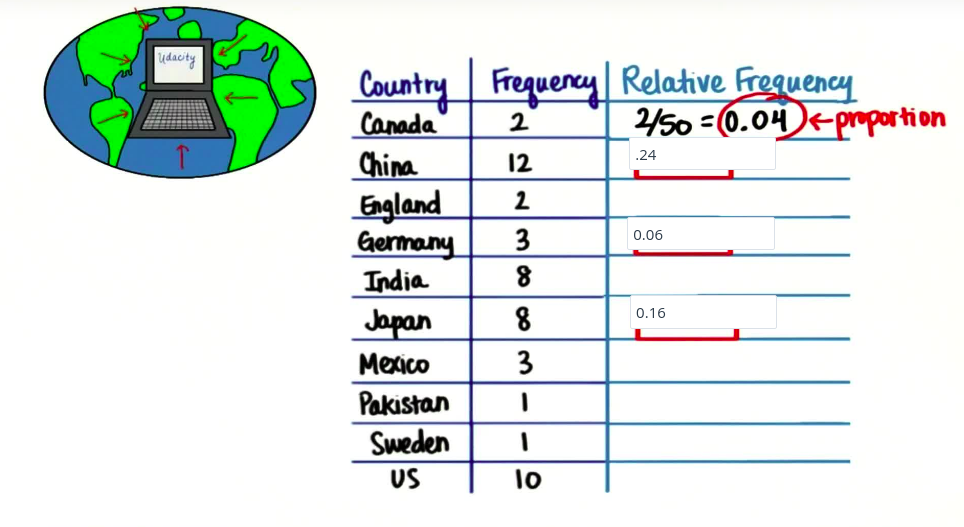 Udacity
Country Frequency Relative Frequency
Canada 2 2/50 = 0.04 ← proportion
China 12 .24
England 2
Germany 3 0.06
India 8
Japan 8 0.16
Mexico 3
Pakistan 1
Sweden 1
US 10